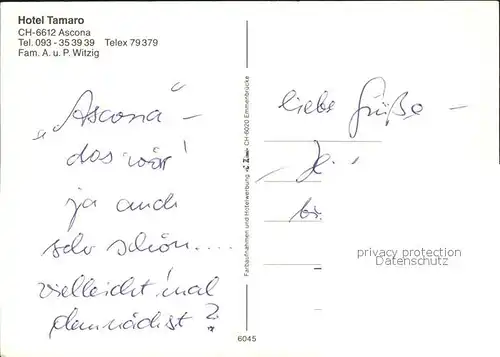 Hotel Tamaro
CH-6612 Ascona
Tel. 093 - 35 39 39 Telex 79 379
Fam. A. u. P. Witzig
„Ascona" –
das wär!
ja auch
sehr schön....
vielleicht mal
demnächst?
Farbaufnahmen und Hotelwerbung CH-6020 Emmenbrücke
6045
liebe Grüße –
privacy protection
Datenschutz